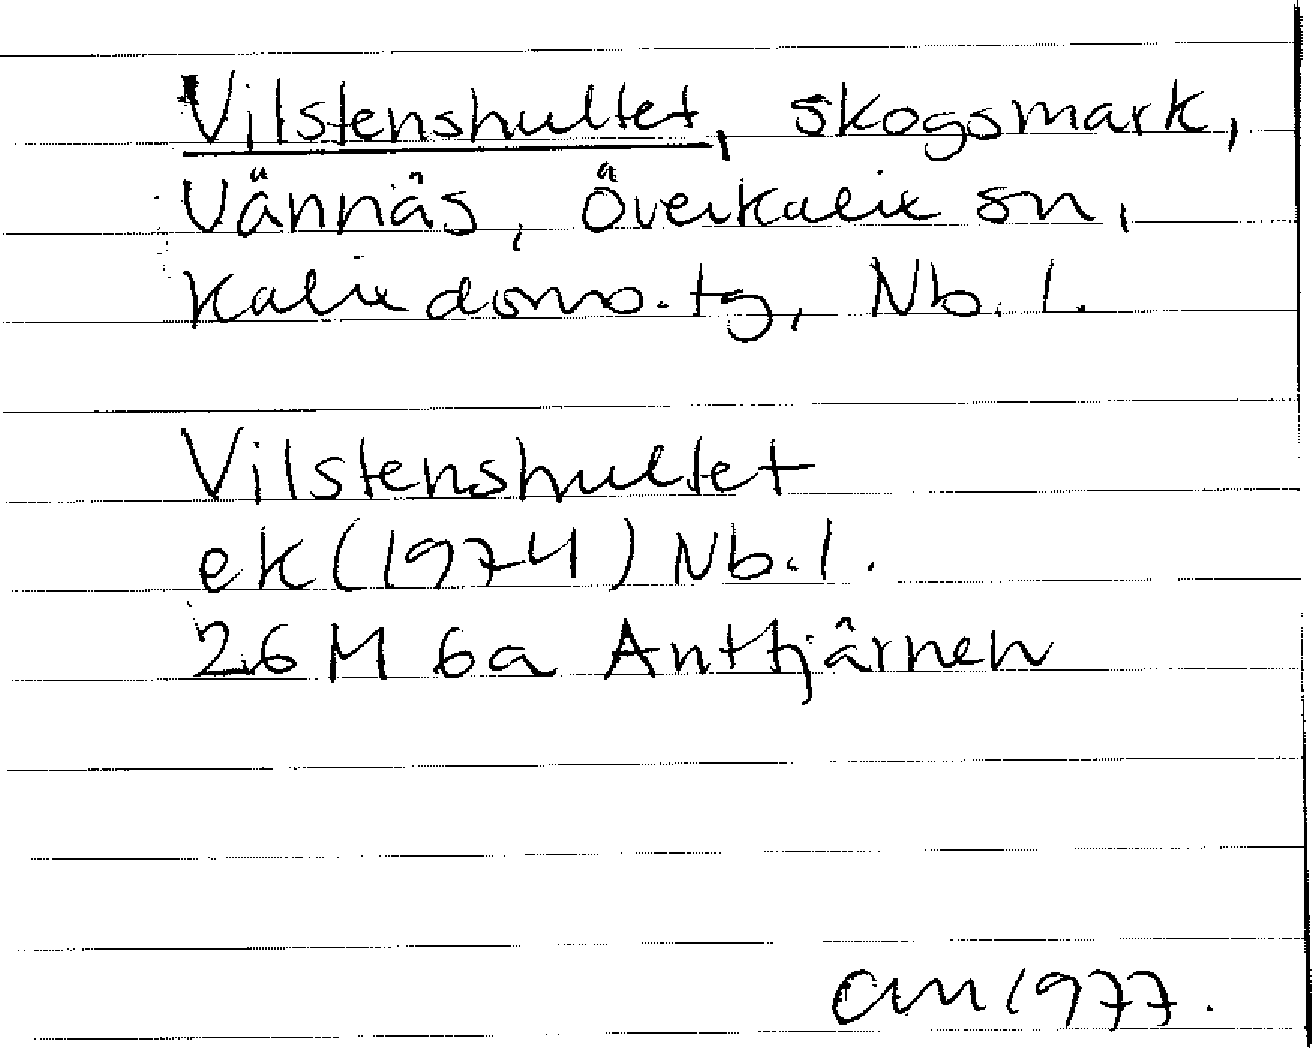 Vilstenshultet, skogsmark,
Vännäs, Överkalix sn,
Kalix doms.tg, Nb.l.
Vilstenshultet
ek (1974) Nb.l.
26 M 6a Anttjärnen
am 1977.